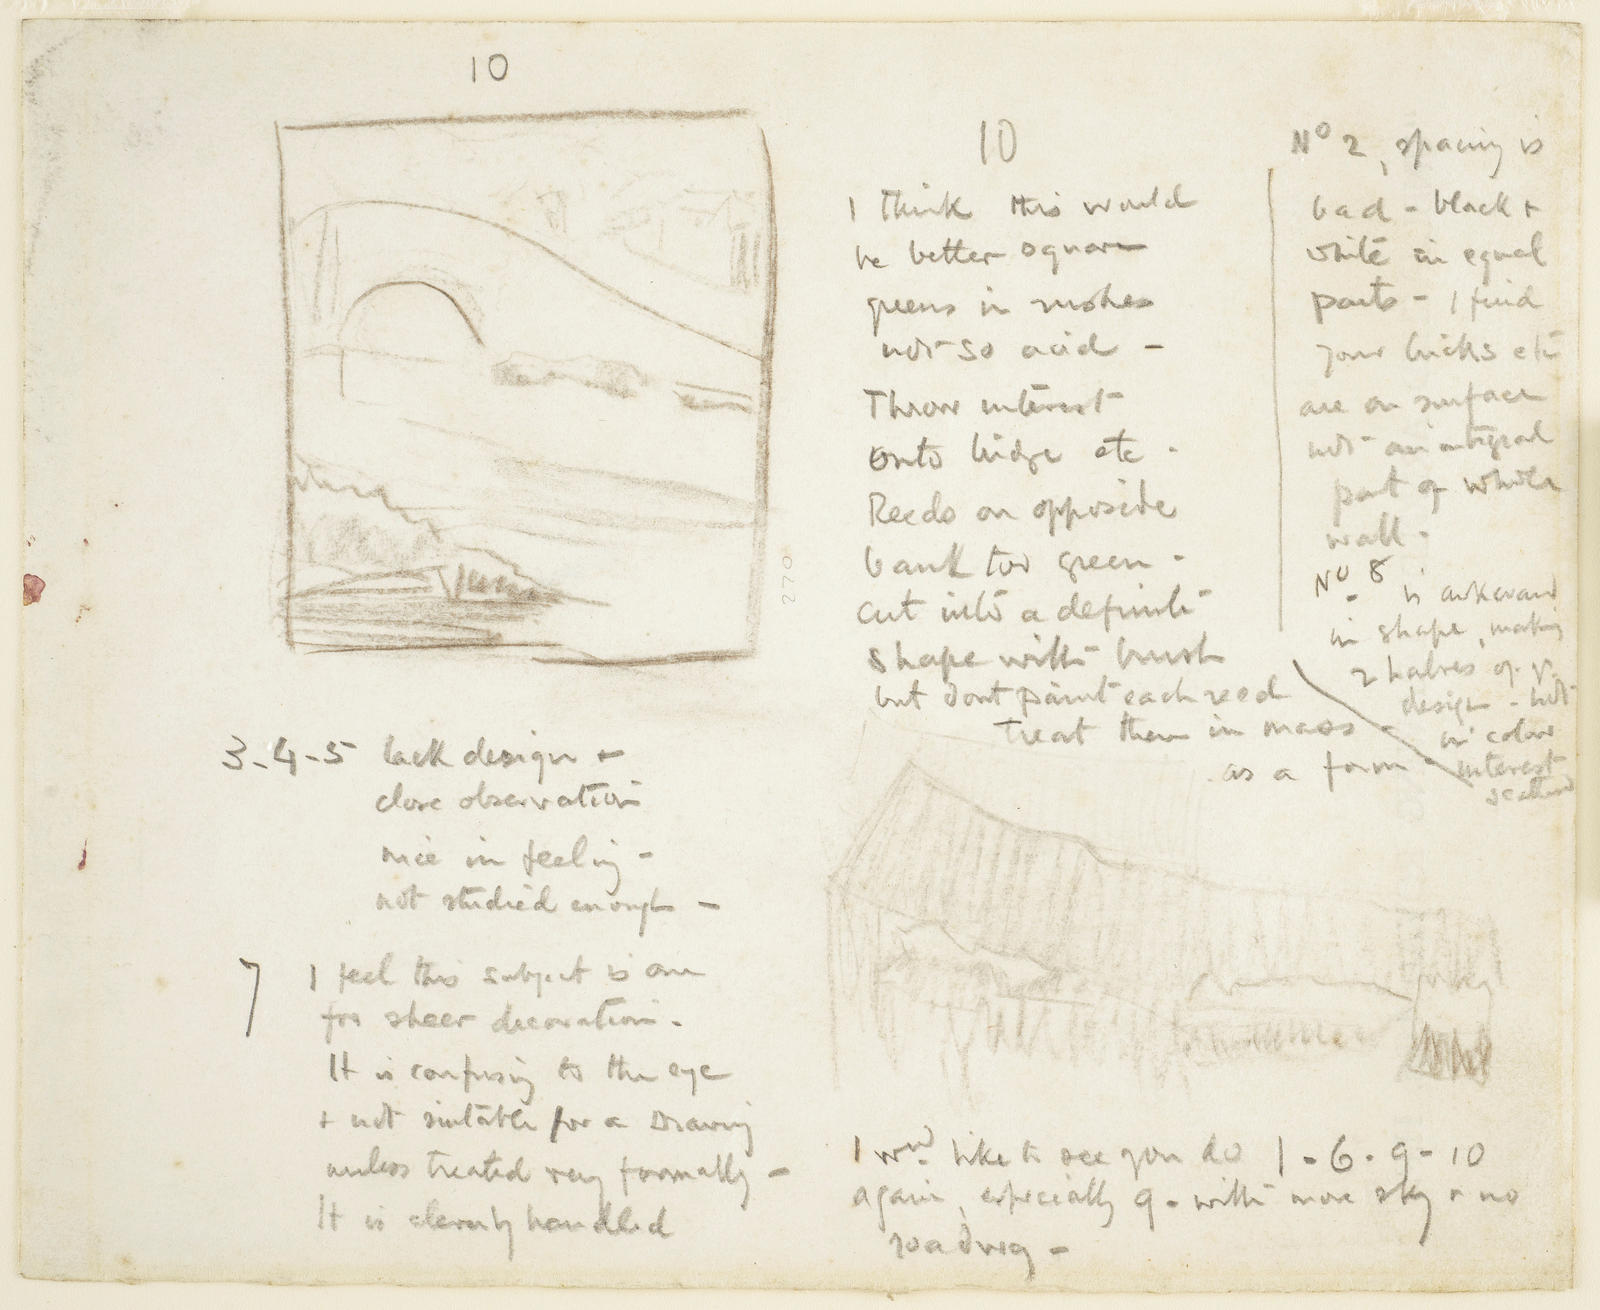 10
10
I think this would
be better square
greens in rushes
not so acid -
Throw interest
onto bridge etc -
Reeds on opposite
bank too green -
cut into a definite
shape with brush
but dont paint each reed
treat them in mass -
as a form -
No 2, spacing is
bad - black +
white in equal
parts - I find
your bricks etc
are on surface
not an integral
part of whole
wall -
No 8 is awkward
in shape, making
2 halves of yr
design - not
in colour
interest
scattered
270
3-4-5 lack design +
close observation
nice in feeling -
not studied enough -
7 I feel this subject is one
for sheer decoration -
It is confusing to the eye
+ not suitable for a Drawing
unless treated very formally -
It is cleverly handled
I wd like to see you do 1-6-9-10
again, especially 9 - with more sky + no
roadway -